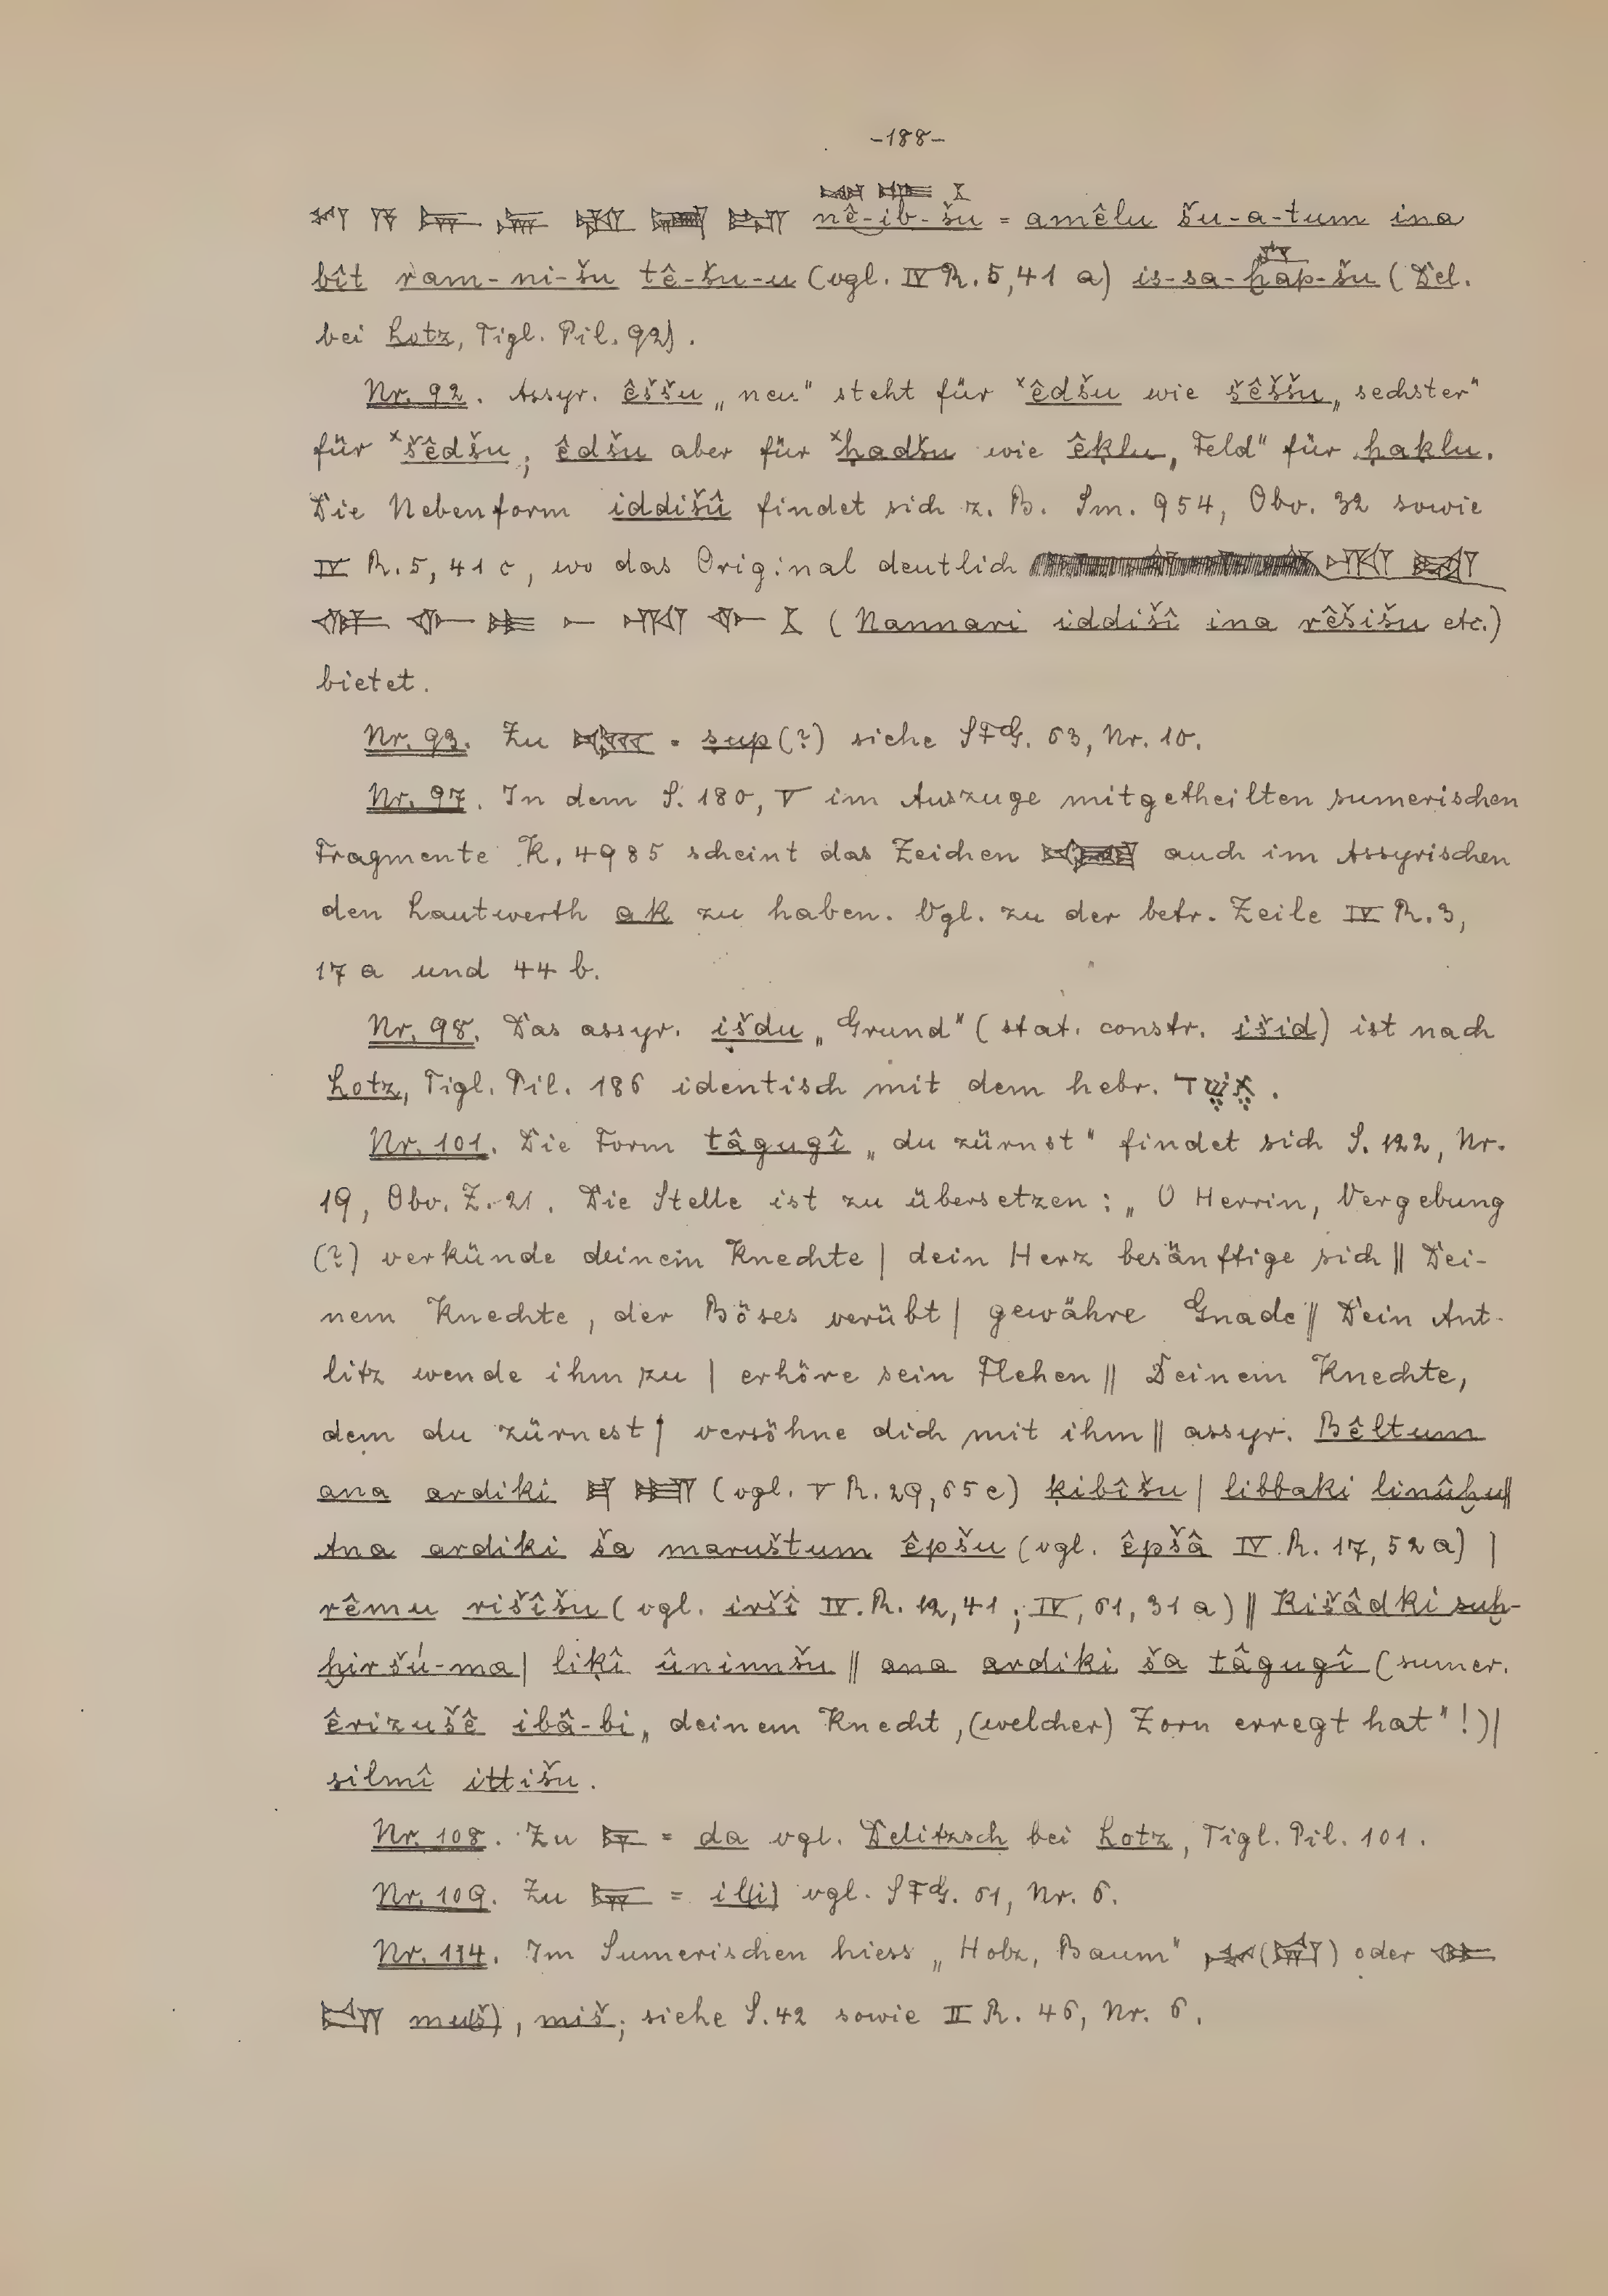 -188-
nê-ib-šu = amêlu šu-a-tum ina
bît ram-ni-šu tê-šu-u (vgl. IV R. 5,41 a) is-sa-ḫap-šu (Del.
bei Lotz, Tigl. Pil. 92).
Nr. 92. Assyr. êššu „neu“ steht für ˣêdšu wie šêššu „sechster“
für ˣšêdšu; êdšu aber für ˣḫadšu wie êḳlu „Feld“ für ḫaḳlu.
Die Nebenform iddišû findet sich z. B. Sm. 954, Obv. 32 sowie
IV R. 5, 41 c, wo das Original deutlich
(Nannari iddišî ina rêšišu etc.)
bietet.
Nr. 93. Zu = sup (?) siehe SFG. 63, Nr. 10.
Nr. 97. In dem S. 180, V im Auszuge mitgetheilten sumerischen
Fragmente K. 4985 scheint das Zeichen auch im Assyrischen
den Lautwerth ak zu haben. Vgl. zu der betr. Zeile IV R. 3,
17 a und 44 b.
Nr. 98. Das assyr. išdu „Grund“ (stat. constr. išid) ist nach
Lotz, Tigl. Pil. 186 identisch mit dem hebr. אֲשֶׁד.
Nr. 101. Die Form tâgugî „du zürnst“ findet sich S. 122, Nr.
19, Obv. Z. 21. Die Stelle ist zu übersetzen: „O Herrin, Vergebung
(?) verkünde deinem Knechte | dein Herz besänftige sich || Dei-
nem Knechte, der Böses verübt | gewähre Gnade || Dein Ant-
litz wende ihm zu | erhöre sein Flehen || Deinem Knechte,
dem du zürnest | versöhne dich mit ihm || assyr. Bêltum
ana ardiki (vgl. V R. 29,65 e) ḳibîšu | libbaki linûḫu ||
Ana ardiki ša maruštum êpšu (vgl. êpšâ IV R. 17, 52 a) |
rêmu rišîšu (vgl. iršî IV. R. 12,41; IV, 61, 31 a) || Kišâdki suḫ-
ḫir šú-ma | liḳî ûninnšu || ana ardiki ša tâgugî (sumer.
êrizušê ibâ-bi „deinem Knecht, (welcher) Zorn erregt hat“!) |
silmî ittišu.
Nr. 108. Zu = da vgl. Delitzsch bei Lotz, Tigl. Pil. 101.
Nr. 109. Zu = il(i) vgl. SFG. 61, Nr. 6.
Nr. 114. Im Sumerischen hiess „Holz, Baum“ ( ) oder
mu(š), miš; siehe S. 42 sowie II R. 46, Nr. 6.